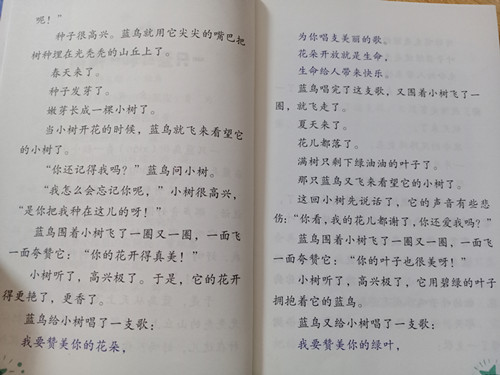 呢！”
种子很高兴。蓝鸟就用它尖尖的嘴巴把
树种埋在光秃秃的山丘上了。
春天来了。
种子发芽了。
嫩芽长成一棵小树了。
当小树开花的时候，蓝鸟就飞来看望它
的小树了。
“你还记得我吗？”蓝鸟问小树。
“我怎么会忘记你呢，”小树很高兴，
“是你把我种在这儿的呀！”
蓝鸟围着小树飞了一圈又一圈，一面飞
一面夸赞它：“你的花开得真美！”
小树听了，高兴极了。于是，它的花开
得更艳了，更香了。
蓝鸟给小树唱了一支歌：
我要赞美你的花朵，
为你唱支美丽的歌。
花朵开放就是生命，
生命给人带来快乐。
蓝鸟唱完了这支歌，又围着小树飞了一
圈，就飞走了。
夏天来了。
花儿都落了。
满树只剩下绿油油的叶子了。
那只蓝鸟又飞来看望它的小树了。
这回小树先说话了，它的声音有些悲
伤：“你看，我的花儿都谢了，你还爱我吗？”
蓝鸟围着小树飞了一圈又一圈，一面飞
一面夸赞它：“你的叶子也很美呀！”
小树听了，高兴极了，它用碧绿的叶子
拥抱着它的蓝鸟。
蓝鸟又给小树唱了一支歌：
我要赞美你的绿叶，